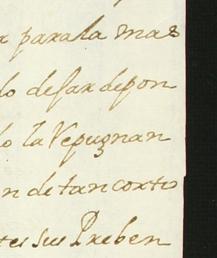 r para la mas
do desar depon
do la Vepugnan
n de tan corto
tes sus Preben